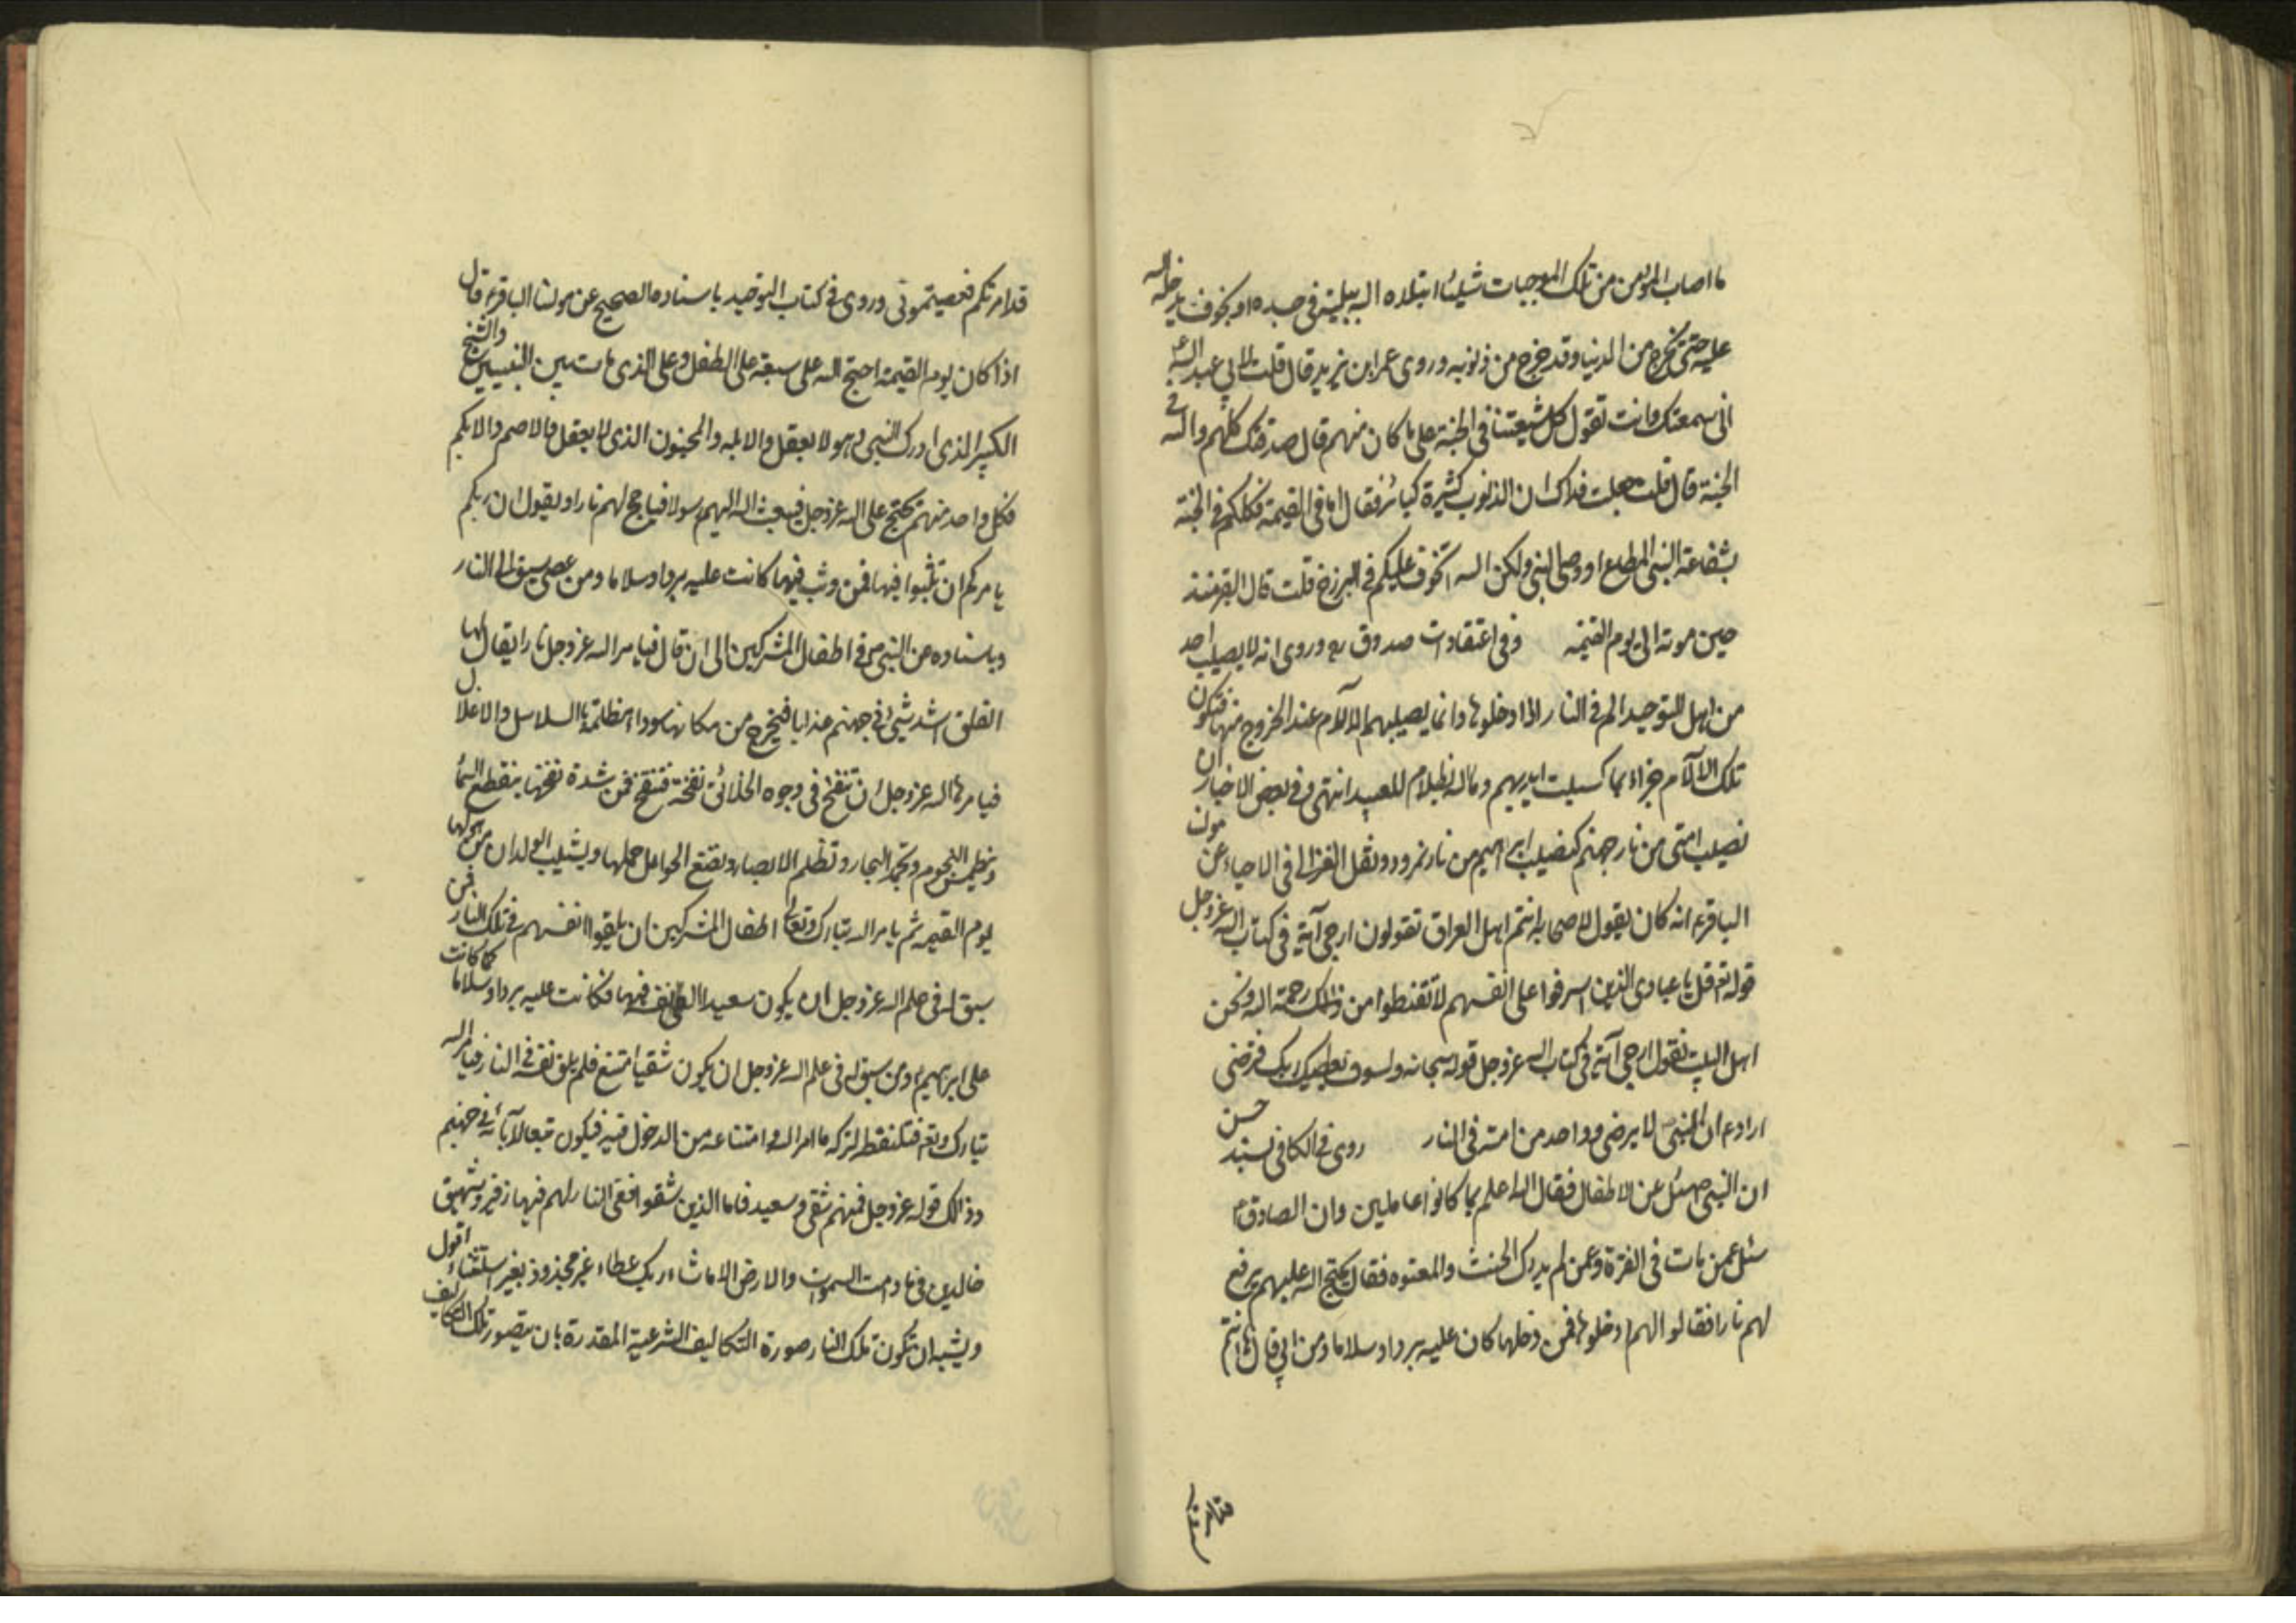 ما اصاب المؤمن من تلك الموجبات شيئا ابتلاه الله ببلية فى جسده او بخوف يدخله الله
عليه حتى يخرج من الدنيا وقد خرج من ذنوبه وروى عمر ابن يزيد قال قلت لابي عبد الله ع
انى سمعتك وانت تقول كل شيعتنا فى الجنة على ما كان منهم قال صدقتك كلهم والله فى
الجنة قال قلت جعلت فداك ان الذنوب كثيرة كبائر فقال اما فى القيمة فكلكم فى الجنة
بشفاعة النبى المطاع او وصى النبى ولكن الله اتخوف عليكم فى البرزخ قلت قال القبر منذ
حين موته الى يوم القيمة وفى اعتقادات صدوق ره وروى انه لا يصيب احد
من اهل التوحيد الم فى النار اذا دخلوها وانما يصيبهم الالآم عند الخروج منها فتكون
تلك الآلآم جزاء بما كسبت ايديهم وما الله بظلام للعبيد انتهى وفى بعض الاخبار ان
نصيب امتى من نار جهنم كنصيب ابراهيم من نار نمرود ونقل الغزالى فى الاحياء عن مولنا
الباقر ع انه كان يقول لاصحابه انتم اهل العراق تقولون ارجى آية فى كتاب الله عز وجل
قوله تع قل يا عبادى الذين اسرفوا على انفسهم لا تقنطوا من رحمة الله ونحن
اهل البيت نقول ارجى آية فى كتاب الله عز وجل قوله سبحانه ولسوف يعطيك ربك فترضى
اراد ع ان النبى ص لا يرضى وواحد من امته فى النار روى فى الكافى بسند حسن
ان النبى ص سئل عن الاطفال فقال الله اعلم بما كانوا عاملين وان الصادق ع
سئل عمن مات فى الفترة وعمن لم يدرك الحنث والمعتوه فقال يحتج الله عليهم يرفع
لهم نارا فقالوا لهم ادخلوها فمن دخلها كان عليه بردا وسلاما ومن ابى قال ها انتم
قد امرتكم
قد امرتكم فعصيتمونى وروى فى كتاب التوحيد باسناده الصحيح عن مولنا الباقر ع قال
اذا كان يوم القيمة احتج الله على سبعة على الطفل وعلى الذى مات بين النبيين والشيخ
الكبير الذى ادرك النبى وهو لا يعقل والابله والمجنون الذى لا يعقل والاصم والابكم
فكل واحد منهم يحتج على الله عز وجل فيبعث الله اليهم رسولا فياجج لهم نارا ويقول ان ربكم
يامركم ان تثبوا فيها فمن وثب فيها كانت عليه بردا وسلاما ومن عصى سيق الى النار
وباسناده عن النبى ص فى اطفال المشركين الى ان قال فيامر الله عز وجل نارا يقال لها
الفلق اشد شيئ فى جهنم عذابا فيخرج من مكانها سوداء مظلمة بالسلاسل والاغلال
فيامرها الله عز وجل ان تنفخ فى وجوه الخلائق نفخة فتنفخ فمن شدة نفختها ينقطع السماء
وينطمس النجوم وتجمد البحار وتظلم الابصار وتضع الحوامل حملها ويشيب الولدان من هولها
يوم القيمه ثم يامر الله تبارك وتعالى اطفال المشركين ان يلقوا انفسهم فى تلك النار فمن
سبق له فى علم الله عز وجل ان يكون سعيدا القى نفسه فيها فكانت عليه بردا وسلاما كما كانت
على ابراهيم ع ومن سبق له فى علم الله عز وجل ان يكون شقيا امتنع فلم يلق نفسه فى النار فيامر الله
تبارك وتع فتلتقطه لتركه ما امر الله وامتناعه من الدخول فيه فيكون تبعا لآبائه فى جهنم
وذالك قوله عز وجل فمنهم شقى وسعيد فاما الذين شقوا ففى النار لهم فيها زفير وشهيق
خالدين فيها ما دامت السموات والارض الا ما شاء ربك عطاء غير مجذوذ بغير استثناء اقول
ويشبه ان تكون تلك النار صورة التكاليف الشرعية المقدرة بان يتصور تلك التكاليف